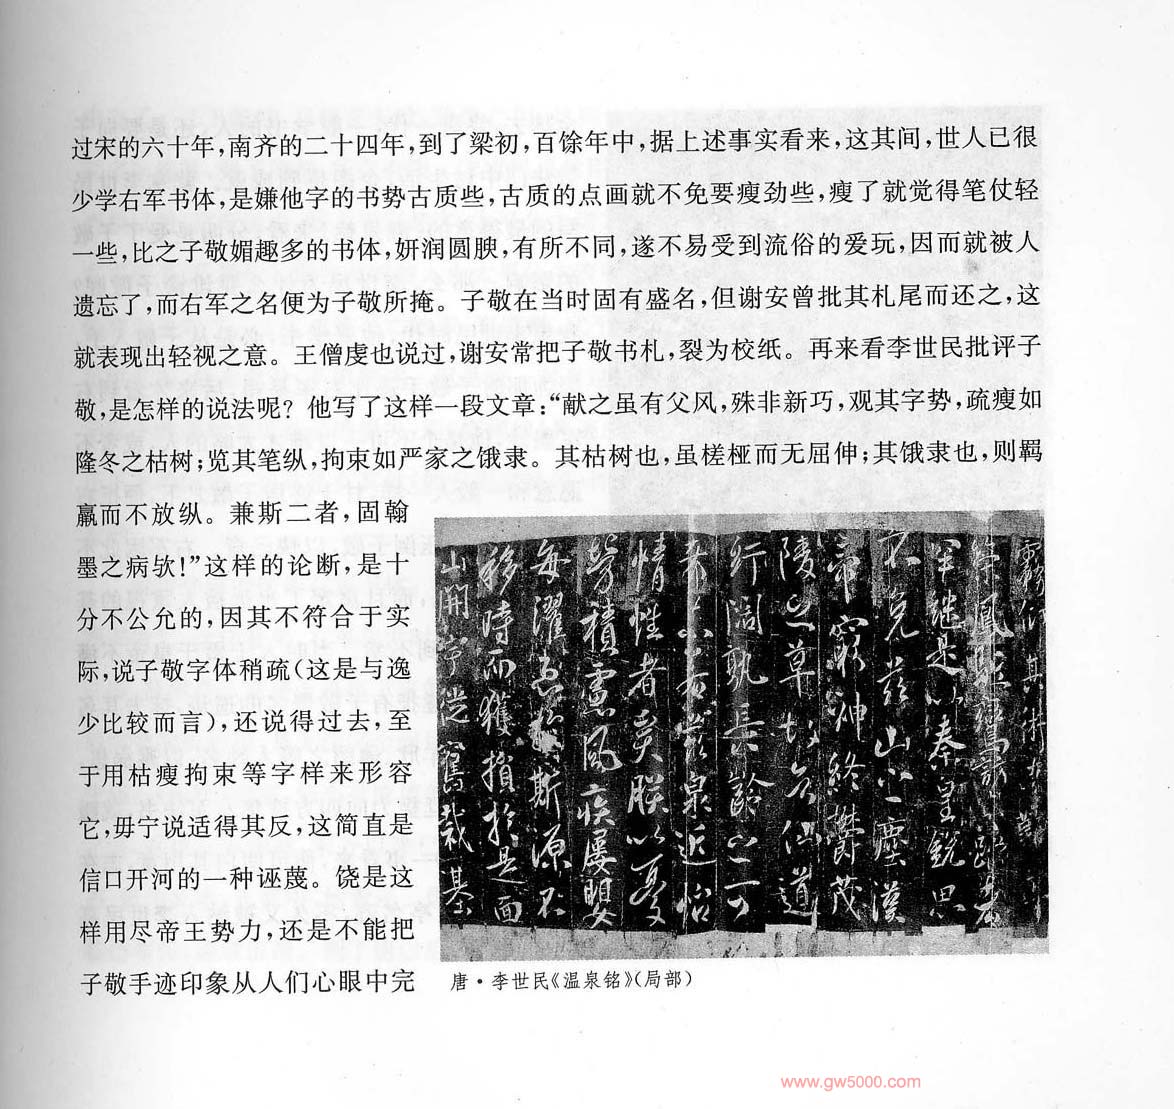 过宋的六十年，南齐的二十四年，到了梁初，百馀年中，据上述事实看来，这其间，世人已很
少学右军书体，是嫌他字的书势古质些，古质的点画就不免要瘦劲些，瘦了就觉得笔仗轻
一些，比之子敬媚趣多的书体，妍润圆腴，有所不同，遂不易受到流俗的爱玩，因而就被人
遗忘了，而右军之名便为子敬所掩。子敬在当时固有盛名，但谢安曾批其札尾而还之，这
就表现出轻视之意。王僧虔也说过，谢安常把子敬书札，裂为校纸。再来看李世民批评子
敬，是怎样的说法呢？他写了这样一段文章：“献之虽有父风，殊非新巧，观其字势，疏瘦如
隆冬之枯树；览其笔纵，拘束如严家之饿隶。其枯树也，虽槎桠而无屈伸；其饿隶也，则羁
羸而不放纵。兼斯二者，固翰
墨之病欤！”这样的论断，是十
分不公允的，因其不符合于实
际，说子敬字体稍疏（这是与逸
少比较而言），还说得过去，至
于用枯瘦拘束等字样来形容
它，毋宁说适得其反，这简直是
信口开河的一种诬蔑。饶是这
样用尽帝王势力，还是不能把
子敬手迹印象从人们心眼中完
不免兹山之一尘漢
帝窮神終鬱茂
陵之草
行閤九長齡之可
情性者矣朕以憂
勞積慮風疾屢嬰
每濯患於斯源不
移時而獲損於是面
山開宇從舊裁基
唐·李世民《温泉铭》（局部）
www.gw5000.com